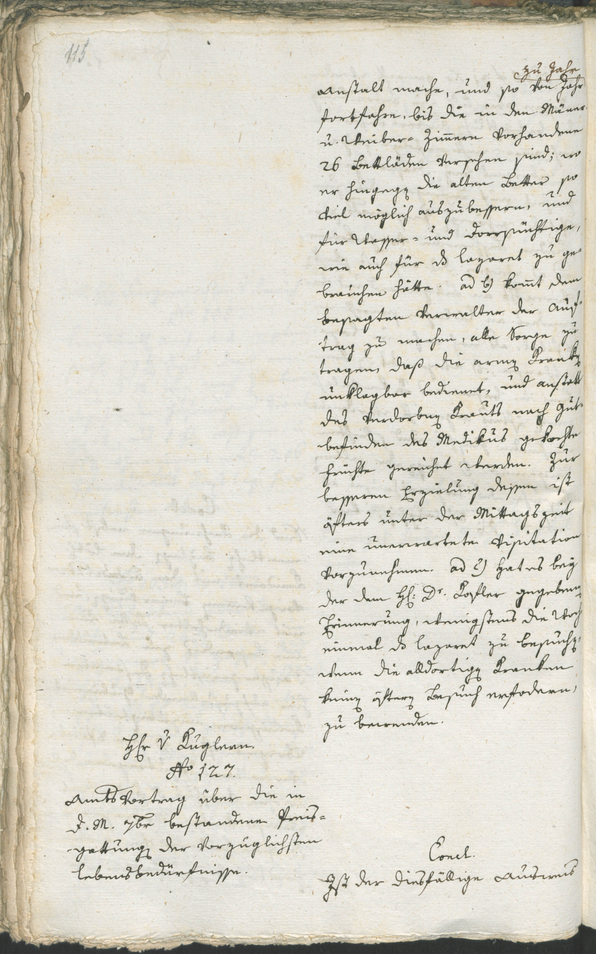 115.
zu Jahr
anstalt mache, und so von Jahr
fortfahre, bis die in den Mäner
u. Weiber-Zimmern vorhandene
26 Bettläden versehen sind; wo
er hingegen die alten Better so
viel möglich auszubessern, und
für Wasser- und Dorrsüchtige,
wie auch für d lazaret zu ge
brauchen hätte. ad b) komt dem
besagten Verwalter der Auf-
trag zu machen, alle Sorge zu
tragen, daß die armen Kranken
unklagbar bedienet, und anstatt
des verdorbenen Krauts nach Gut
befinden des Medikus gekochte
früchte gereichet werden. Zur
besseren Erzielung dessen ist
öfters unter der Mittagszeit
eine unerwartete Visitation
vorzunehmen. ad c) hat es bey
der dem H: Dr. gegebenen
Erinnerung, wenigstens die Woch
einmal d lazaret zu besuchen,
wenn die alldortigen Kranken
keinen öftern Besuch erfodern,
zu bewenden.
Hr v Kuglern.
No 127.
Amts Vortrag über die in
d. M. 7br bestandene Preis-
gattungen der vorzüglichsten
lebensbedürfnisse.
Concl.
Ist der diesfällige Ausweis